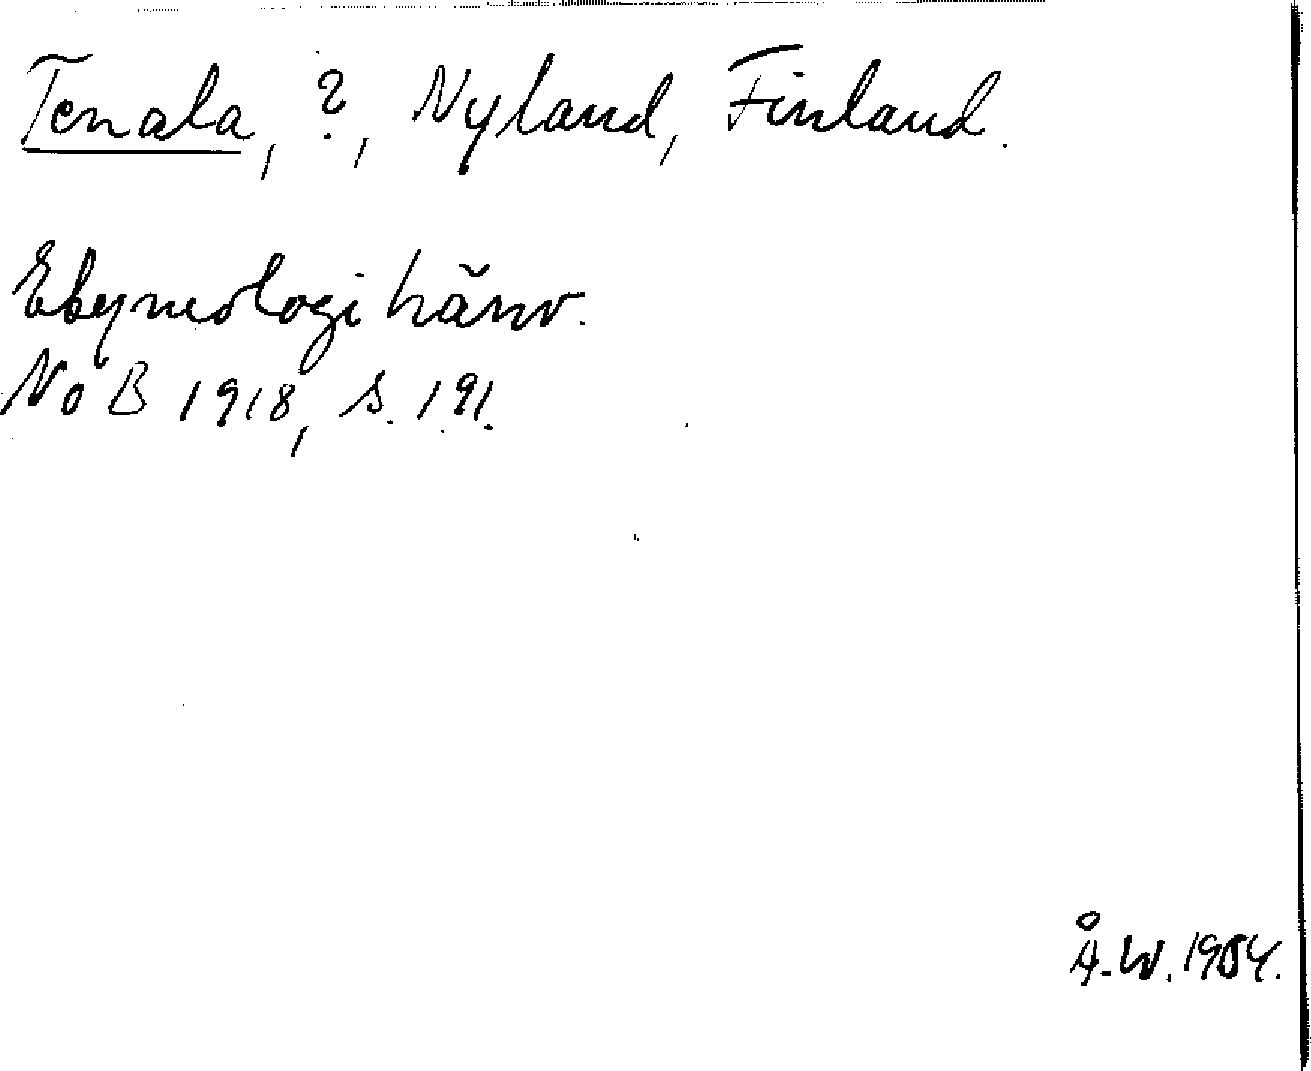 Tenala, ?, Nyland, Finland.
Etymologi hänv.
NoB 1918, s. 191.
Å.W. 1954.